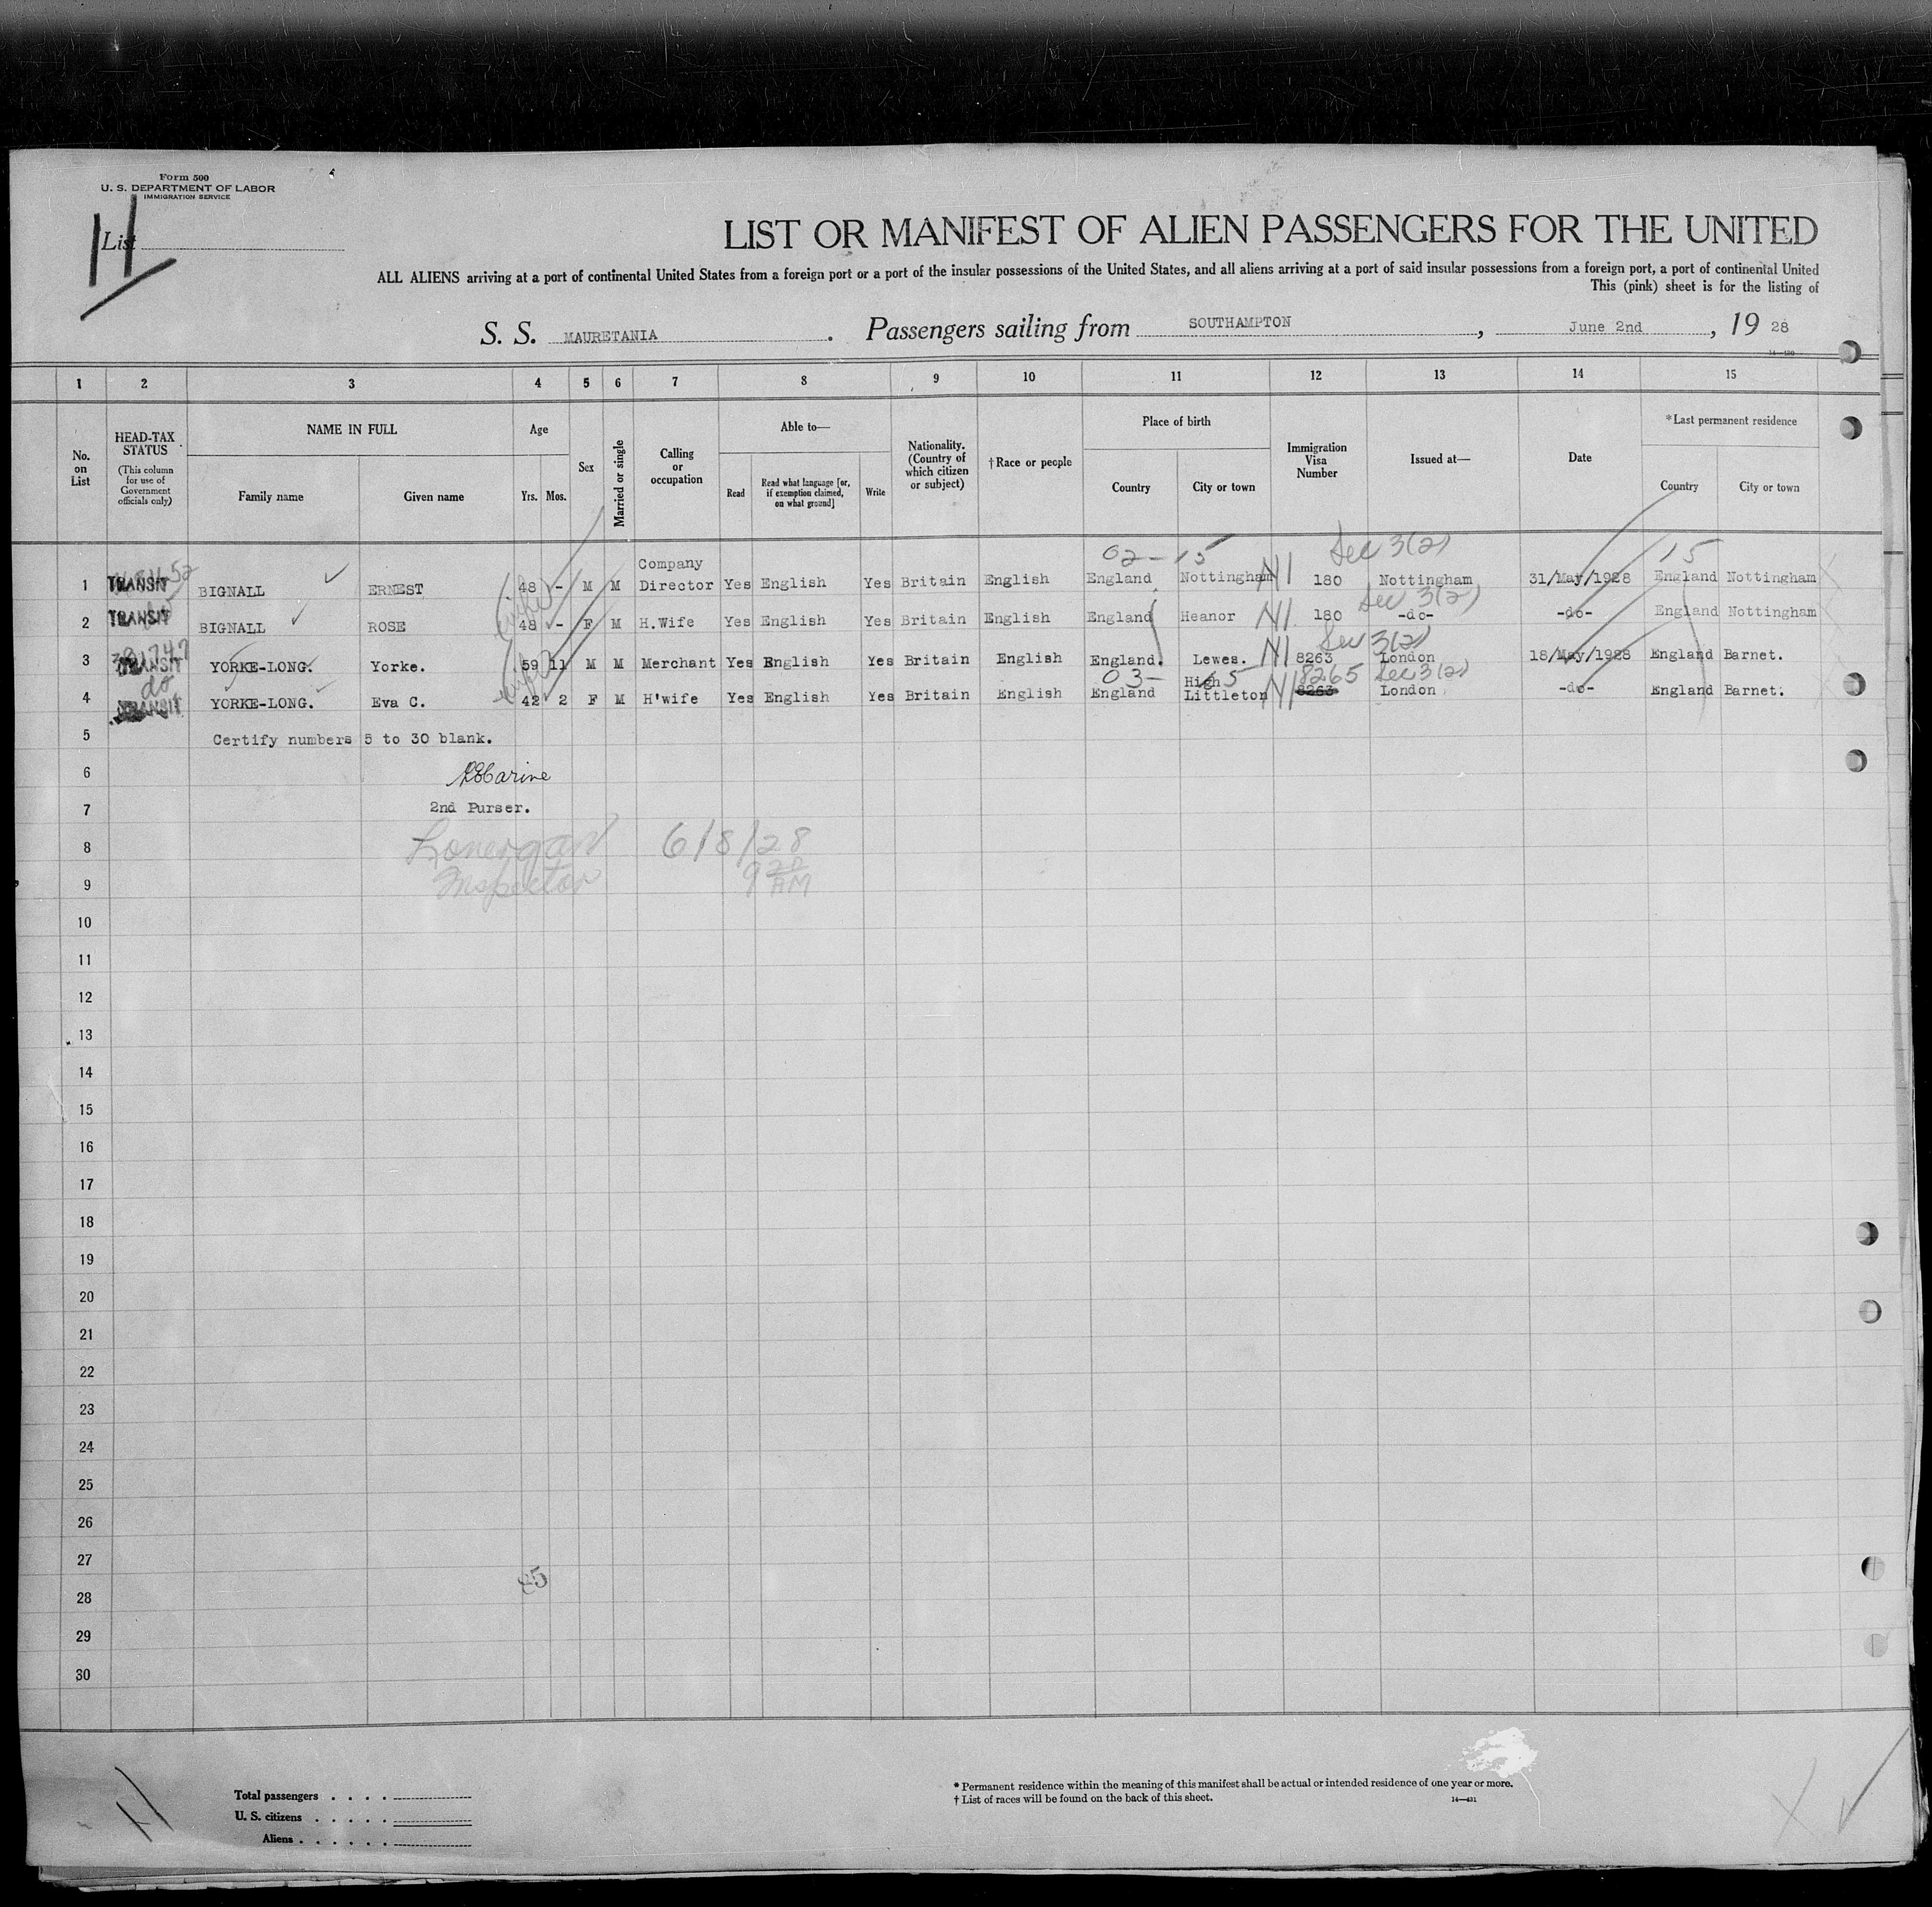 Form 500
U. S. DEPARTMENT OF LABOR
IMMIGRATION SERVICE
List
11
LIST OR MANIFEST OF ALIEN PASSENGERS FOR THE UNITED
ALL ALIENS arriving at a port of continental United States from a foreign port or a port of the insular possessions of the United States, and all aliens arriving at a port of said insular possessions from a foreign port, a port of continental United
This (pink) sheet is for the listing of
S. S. MAURETANIA . Passengers sailing from SOUTHAMPTON , June 2nd , 19 28
1 2 3 4 5 6 7 8 9 10 11 12 13 14 15
No. on List
HEAD-TAX STATUS (This column for use of Government officials only)
NAME IN FULL
Family name Given name
Age
Yrs. Mos.
Sex
Married or single
Calling or occupation
Able to—
Read
Read what language [or, if exemption claimed, on what ground]
Write
Nationality. (Country of which citizen or subject)
†Race or people
Place of birth
Country City or town
Immigration Visa Number
Issued at—
Date
*Last permanent residence
Country City or town
02-15 Sec 3(2) 15
1 TRANSIT BIGNALL ERNEST 48 - M M Company Director Yes English Yes Britain English England Nottingham 180 Nottingham 31/May/1928 England Nottingham
Sec 3(2)
2 TRANSIT BIGNALL ROSE 48 - F M H.Wife Yes English Yes Britain English England Heanor 180 -do- -do- England Nottingham
Sec 3(2)
3 TRANSIT YORKE-LONG. Yorke. 59 11 M M Merchant Yes English Yes Britain English England. Lewes. 8263 London 18/May/1928 England Barnet.
do 03- 5 8265 Sec 3(2)
4 TRANSIT YORKE-LONG. Eva C. 42 2 F M H'wife Yes English Yes Britain English England High Littleton 8263 London -do- England Barnet.
5 Certify numbers 5 to 30 blank.
6
7 2nd Purser.
8 Lonergan 6/8/28
9 Inspector 9 20 AM
10
11
12
13
14
15
16
17
18
19
20
21
22
23
24
25
26
27
28
29
30
Total passengers . . . .
U. S. citizens . . . . .
Aliens . . . . . .
* Permanent residence within the meaning of this manifest shall be actual or intended residence of one year or more.
† List of races will be found on the back of this sheet.
14—431